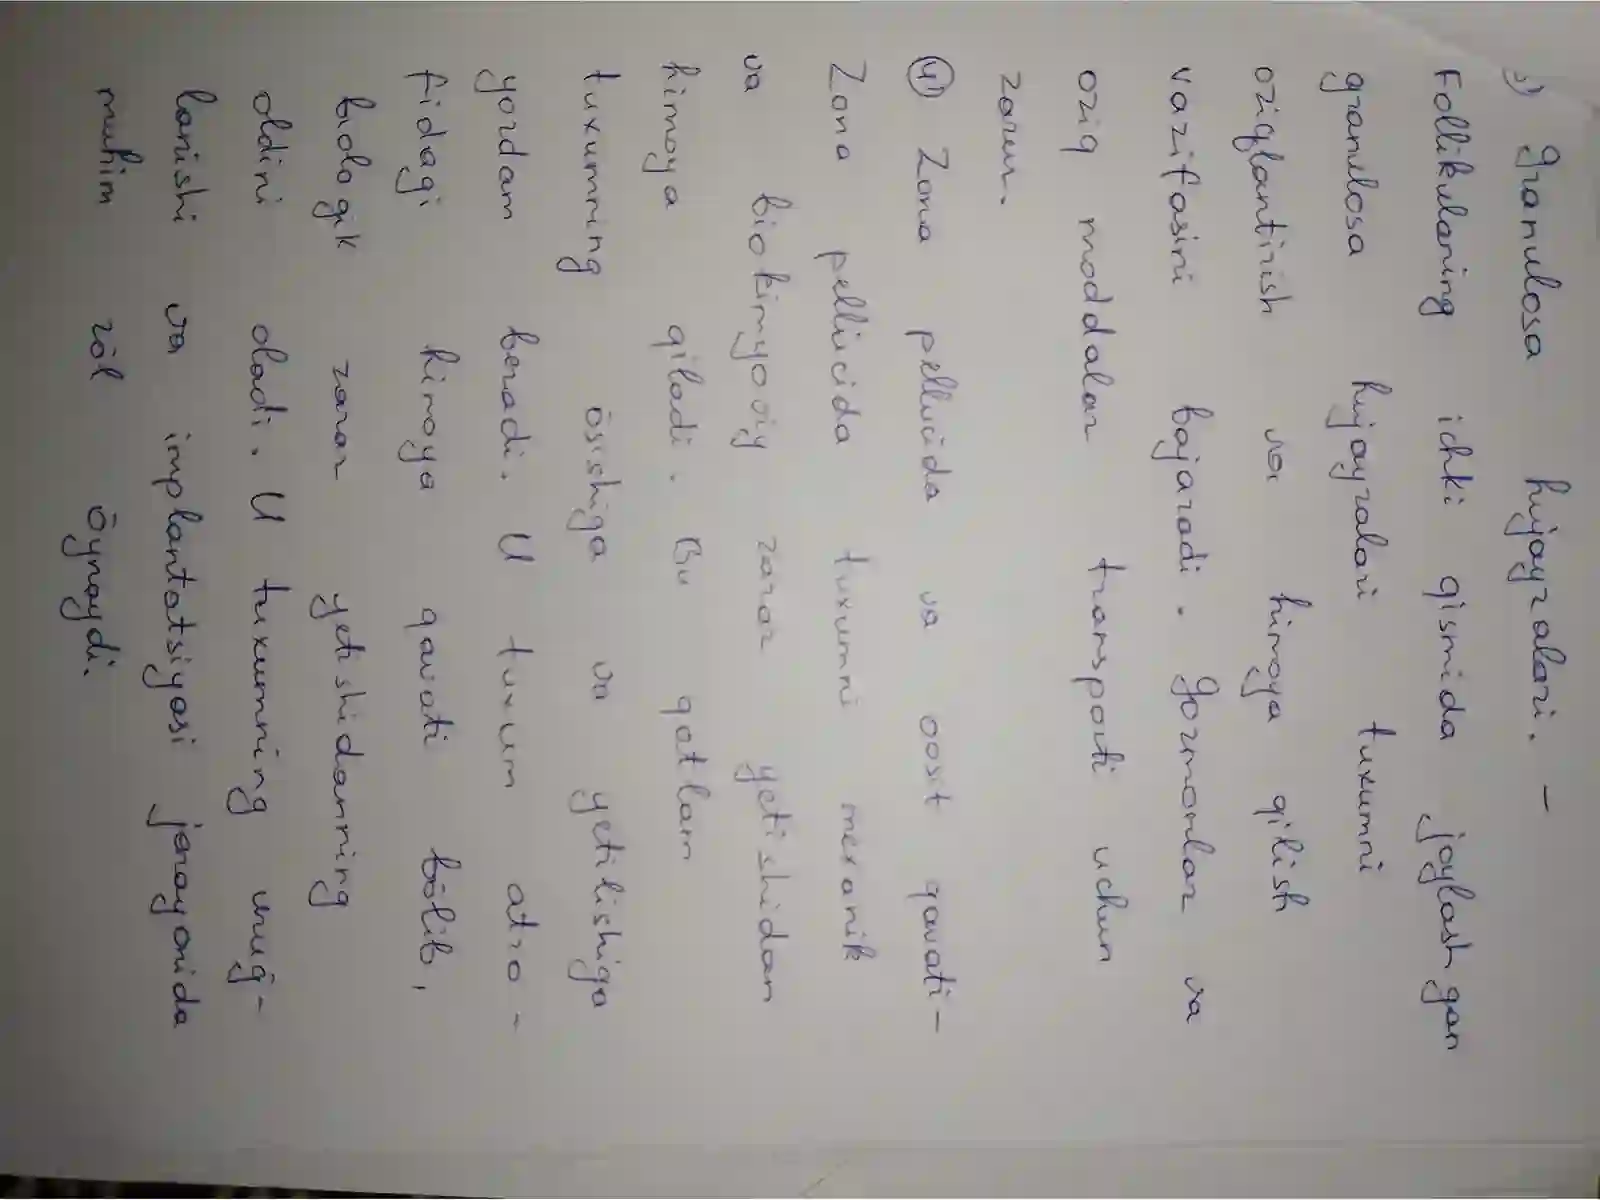 3) Granulosa hujayralari. -
Follikulaning ichki qismida joylashgan
granulosa hujayralari tuxumni
oziqlantirish va himoya qilish
vazifasini bajaradi. Gormonlar va
oziq moddalar transporti uchun
zarur.
④ Zona pellucida va oosit qavati -
Zona pellucida tuxumni mexanik
va biokimyoviy zarar yetishidan
himoya qiladi. Bu qatlam
tuxumning ōsishiga va yetilishiga
yordam beradi. U tuxum atro-
fidagi himoya qavati bōlib,
biologik zarar yetishidanning
oldini oladi. U tuxumning uruḡ-
lanishi va implantatsiyasi jarayonida
muhim rōl ōynaydi.